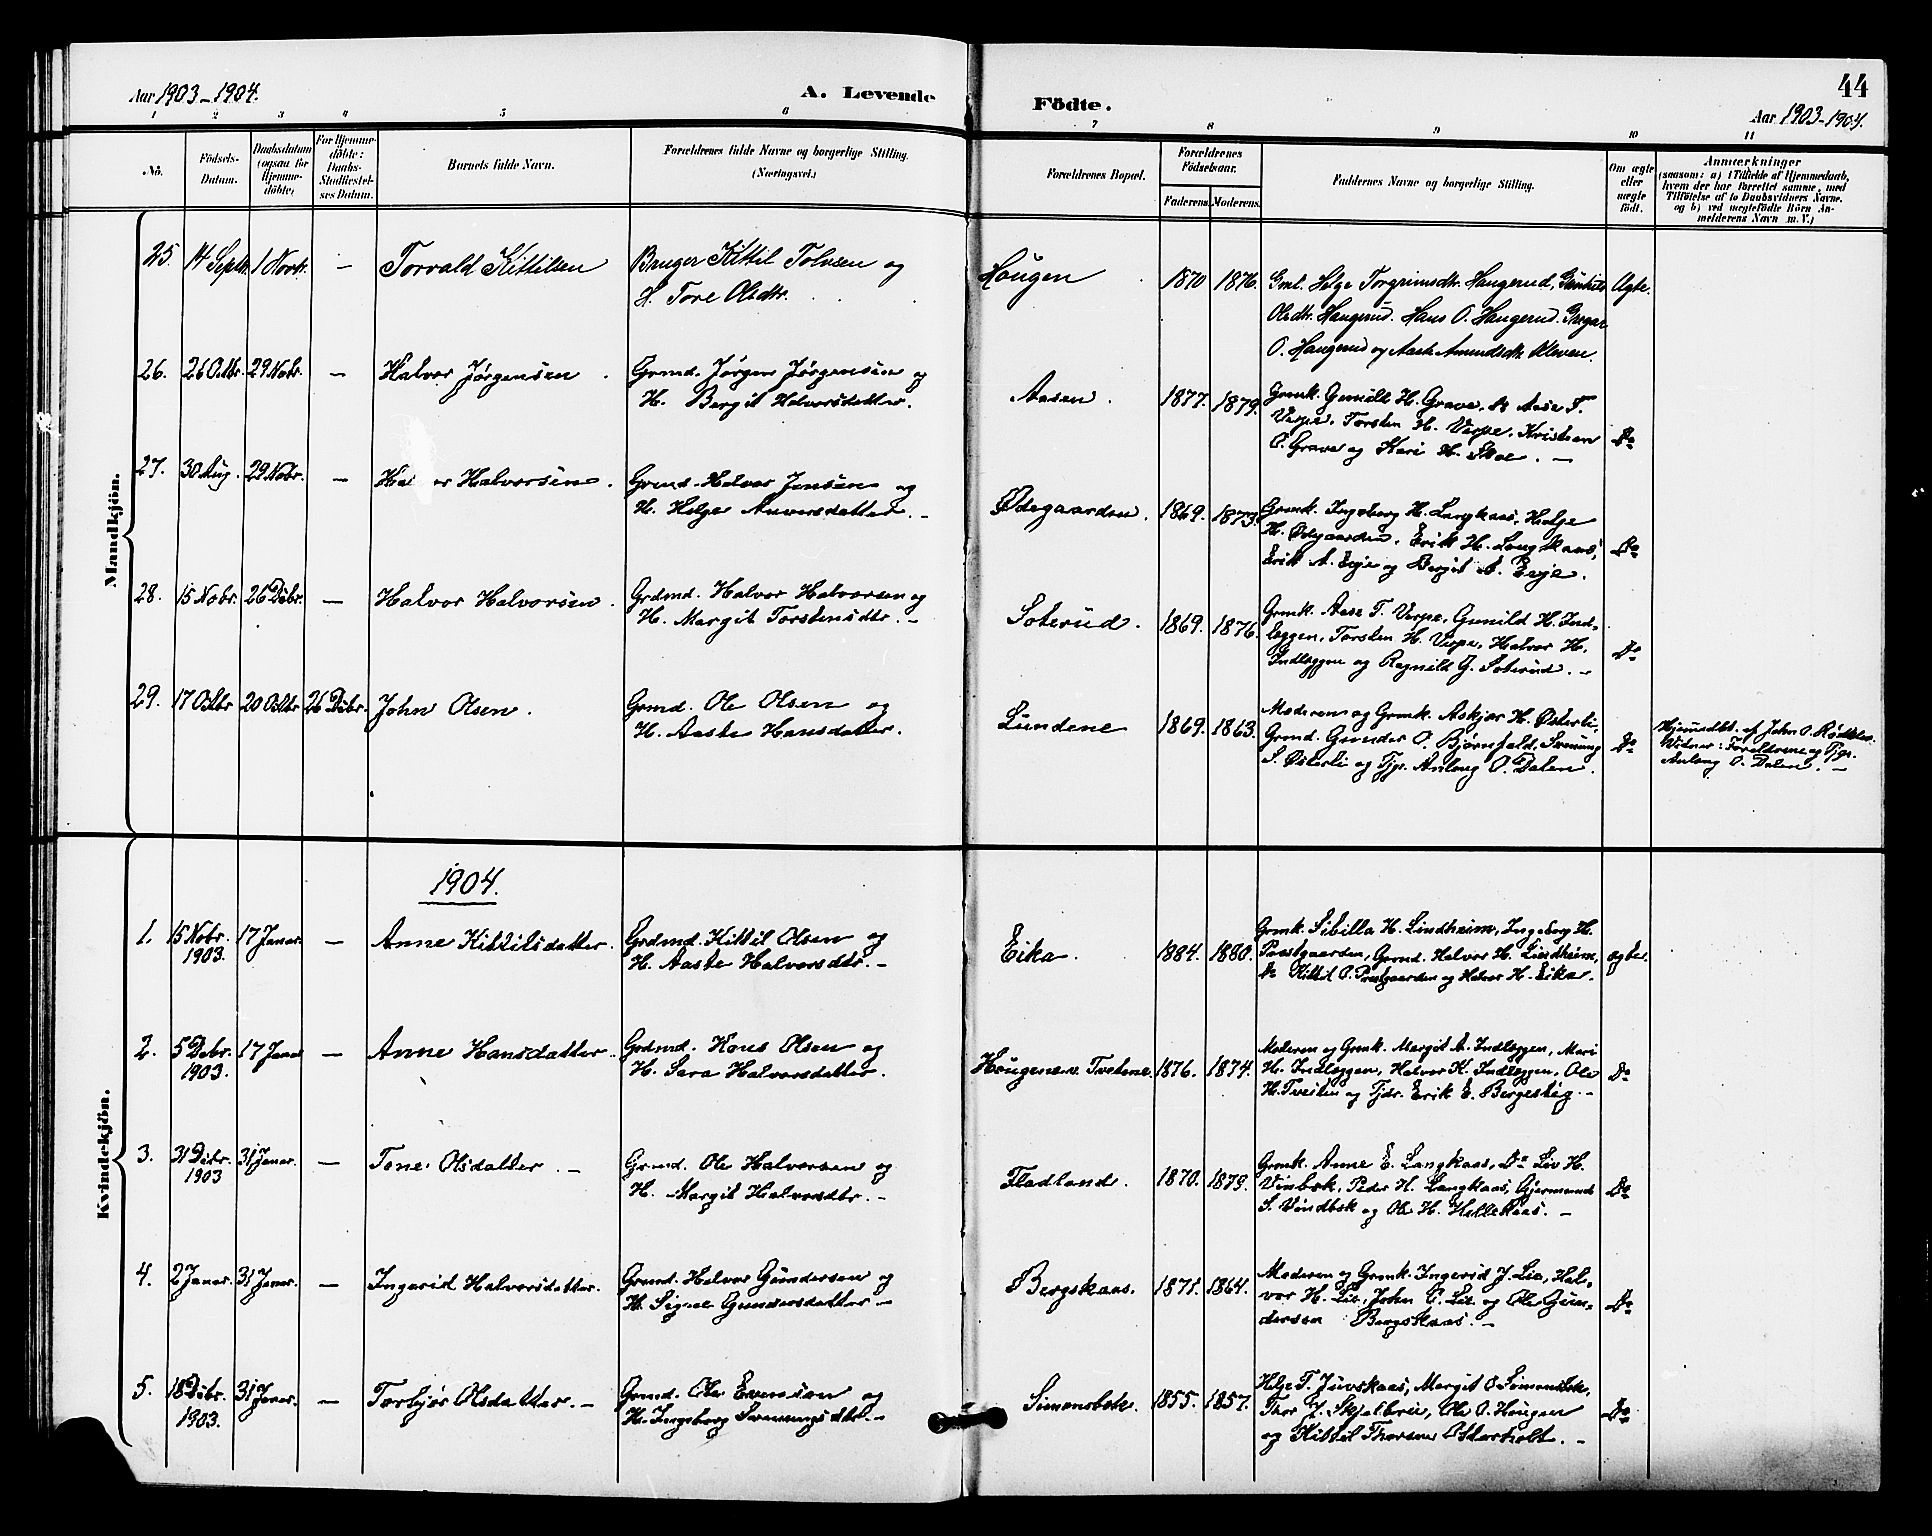 Aar 1903-1904.
A. Levende
Födte.
44
Aar 1903-1904.
1 2 3 4 5 6 7 8 9 10 11
No.
Födsels-
Datum.
Daabsdatum
(ogsaa for
Hjemme-
döbte)
For Hjemme-
döbte:
Daabs-
Stadfæstel-
ses Datum.
Barnets fulde Navn.
Forældrenes fulde Navne og borgerlige Stilling.
(Næringsvei.)
Forældrenes Bopæl.
Forældrenes
Födselsaar.
Faderens. Moderens.
Faddernes Navne og borgerlige Stilling.
Om ægte
eller
uægte
födt.
Anmærkninger
(saasom: a) i Tilfælde af Hjemmedaab,
hvem der har forrettet samme, med
Tilföielse af to Daabsvidners Navne,
og b) ved uægtefödte Börn An-
melderens Navn m. V.)
Mandkjön.
25. 14 Septr. 1 Novbr. — Torvald Kittilsen
Bruger Kittil Tolvsen og
H. Tore Olsdtr.
Haugen 1870 1876.
Gml. Helge Torgrimsdtr. Haugerud,
Olsdtr. Haugerud. Hans O. Haugerud. Gregar
O. Haugerud og Aaste Amundsdtr. Kleven.
Ægte.
26. 26 Oktbr. 29 Nobr. — Halvor Jørgensen.
Grmd. Jørgen Jørgensen og
H. Bergit Halvorsdatter.
Aasen. 1877. 1879.
Grmk. Gunild H. Grave, Aase T.
Verpe, Torsten H. Verpe, Kristian
O. Grave og Kari H. Skoe. —
Do
27. 30 Aug. 29 Nobr. — Halvor Halvorsen.
Grmd. Halvor Jensen og
H. Helge Anversdatter. —
Ødegaarden. 1869. 1873.
Grmk. Ingeborg H. Langkaas, Helge
H. Ødegaarden, Erik H. Langkaas,
Erik A. Eeje og Bergit A. Eeje.
Do
28. 15 Nobr. 26 Debr. — Halvor Halvorsen.
Grdmd. Halvor Halvorsen og
H. Margit Torstensdtr. —
Soterud. 1869. 1876.
Grmk. Aase T. Verpe, Gunild H. Ind-
læggen, Torsten H. Verpe, Halvor H.
Indlæggen og Ragnild G. Soterud. —
Do
29. 17 Oktbr. 20 Oktbr. 26 Debr. John Olsen.
Grmd. Ole Olsen og
H. Aaste Hansdatter.
Lundene 1869. 1863.
Moderen og Grmk. Askjær H. Østerli,
Grmd. Gunder O. Bjørnfald, Svenung
S. Østerli og Pige Anlaug O. Dalen.
Do
Hjemmedbt. af John O.
Vidner: Forældrene og Pige
Anlaug O. Dalen. —
Kvindekjön.
1904.
1. 15 Nobr. 17 Januar. — Anne Kittilsdatter.
1903.
Grdmd. Kittil Olsen og
H. Aaste Halvorsdtr. —
Eika. 1884. 1880.
Grmk. Sibilla H. Lindheim, Ingeborg H.
Præstgaarden, Grmd. Halvor H. Lindheim,
Do Kittil O. Præstgaarden og Halvor H. Eika.
ægte.
2. 5 Debr. 17 Januar — Anne Hansdatter.
1903.
Grdmd. Hans Olsen og
H. Sara Halvorsdatter.
Haugen u. Tveitene. 1876. 1874.
Moderen og Grmk. Margit A. Indlæggen, Mari
H. Indlæggen, Halvor K. Indlæggen, Ole
H. Tveiten og Tjdr. Erik E. Bergestig. —
Do
3. 31 Debr. 31 Januar. — Tone Olsdatter. —
1903
Grmd. Ole Halvorsen og
H. Margit Halvorsdtr. —
Fladland. 1870. 1879.
Grmk. Anne E. Langkaas, Do Liv H.
Vinbæk, Peder H. Langkaas, Gjermund
S. Vindbæk og Ole H. Hellekaas. —
Do
4. 2 Januar. 31 Januar. — Ingerid Halvorsdatter.
Grmd. Halvor Gundersen og
H. Signe Gundersdatter —
Bergskaas. 1871. 1864.
Moderen og Grmk. Ingerid J. Lie, Hal-
vor H. Lie, John C. Lie og Ole Gun-
dersen Bergskaas. —
Do
5. 18 Debr. 31 Januar. — Torbjør Olsdatter. —
1903.
Grmd. Ole Evensen og
H. Ingeborg Svenungsdtr. —
Simonsbæk. 1855. 1857.
Helge T. Juvskaas, Margit O Simonsbæk,
Thor J. Skjelbrei, Ole O. Haugen
og Kittil Thorsen Østerholt. —
Do